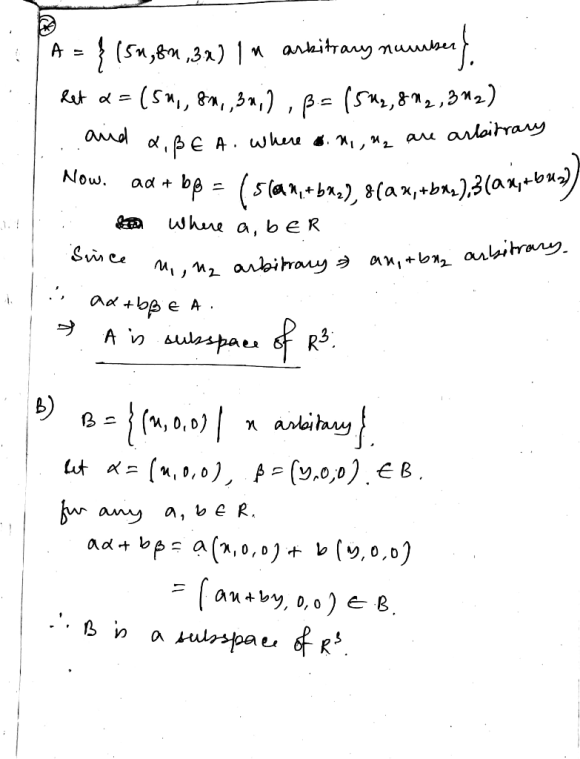 A = { (5x, 8x, 3x) | x arbitrary number }.
Let α = (5x₁, 8x₁, 3x₁), β = (5x₂, 8x₂, 3x₂)
and α, β ∈ A. where x₁, x₂ are arbitrary
Now. aα + bβ = (5(ax₁+bx₂), 8(ax₁+bx₂), 3(ax₁+bx₂))
where a, b ∈ R
Since x₁, x₂ arbitrary ⇒ ax₁+bx₂ arbitrary.
∴ aα + bβ ∈ A.
⇒ A is subspace of R³.
B) B = { (x, 0, 0) | x arbitary }.
let α = (x, 0, 0), β = (y, 0, 0). ∈ B.
for any a, b ∈ R.
aα + bβ = a(x, 0, 0) + b(y, 0, 0)
= (ax+by, 0, 0) ∈ B.
∴ B is a subspace of R³.